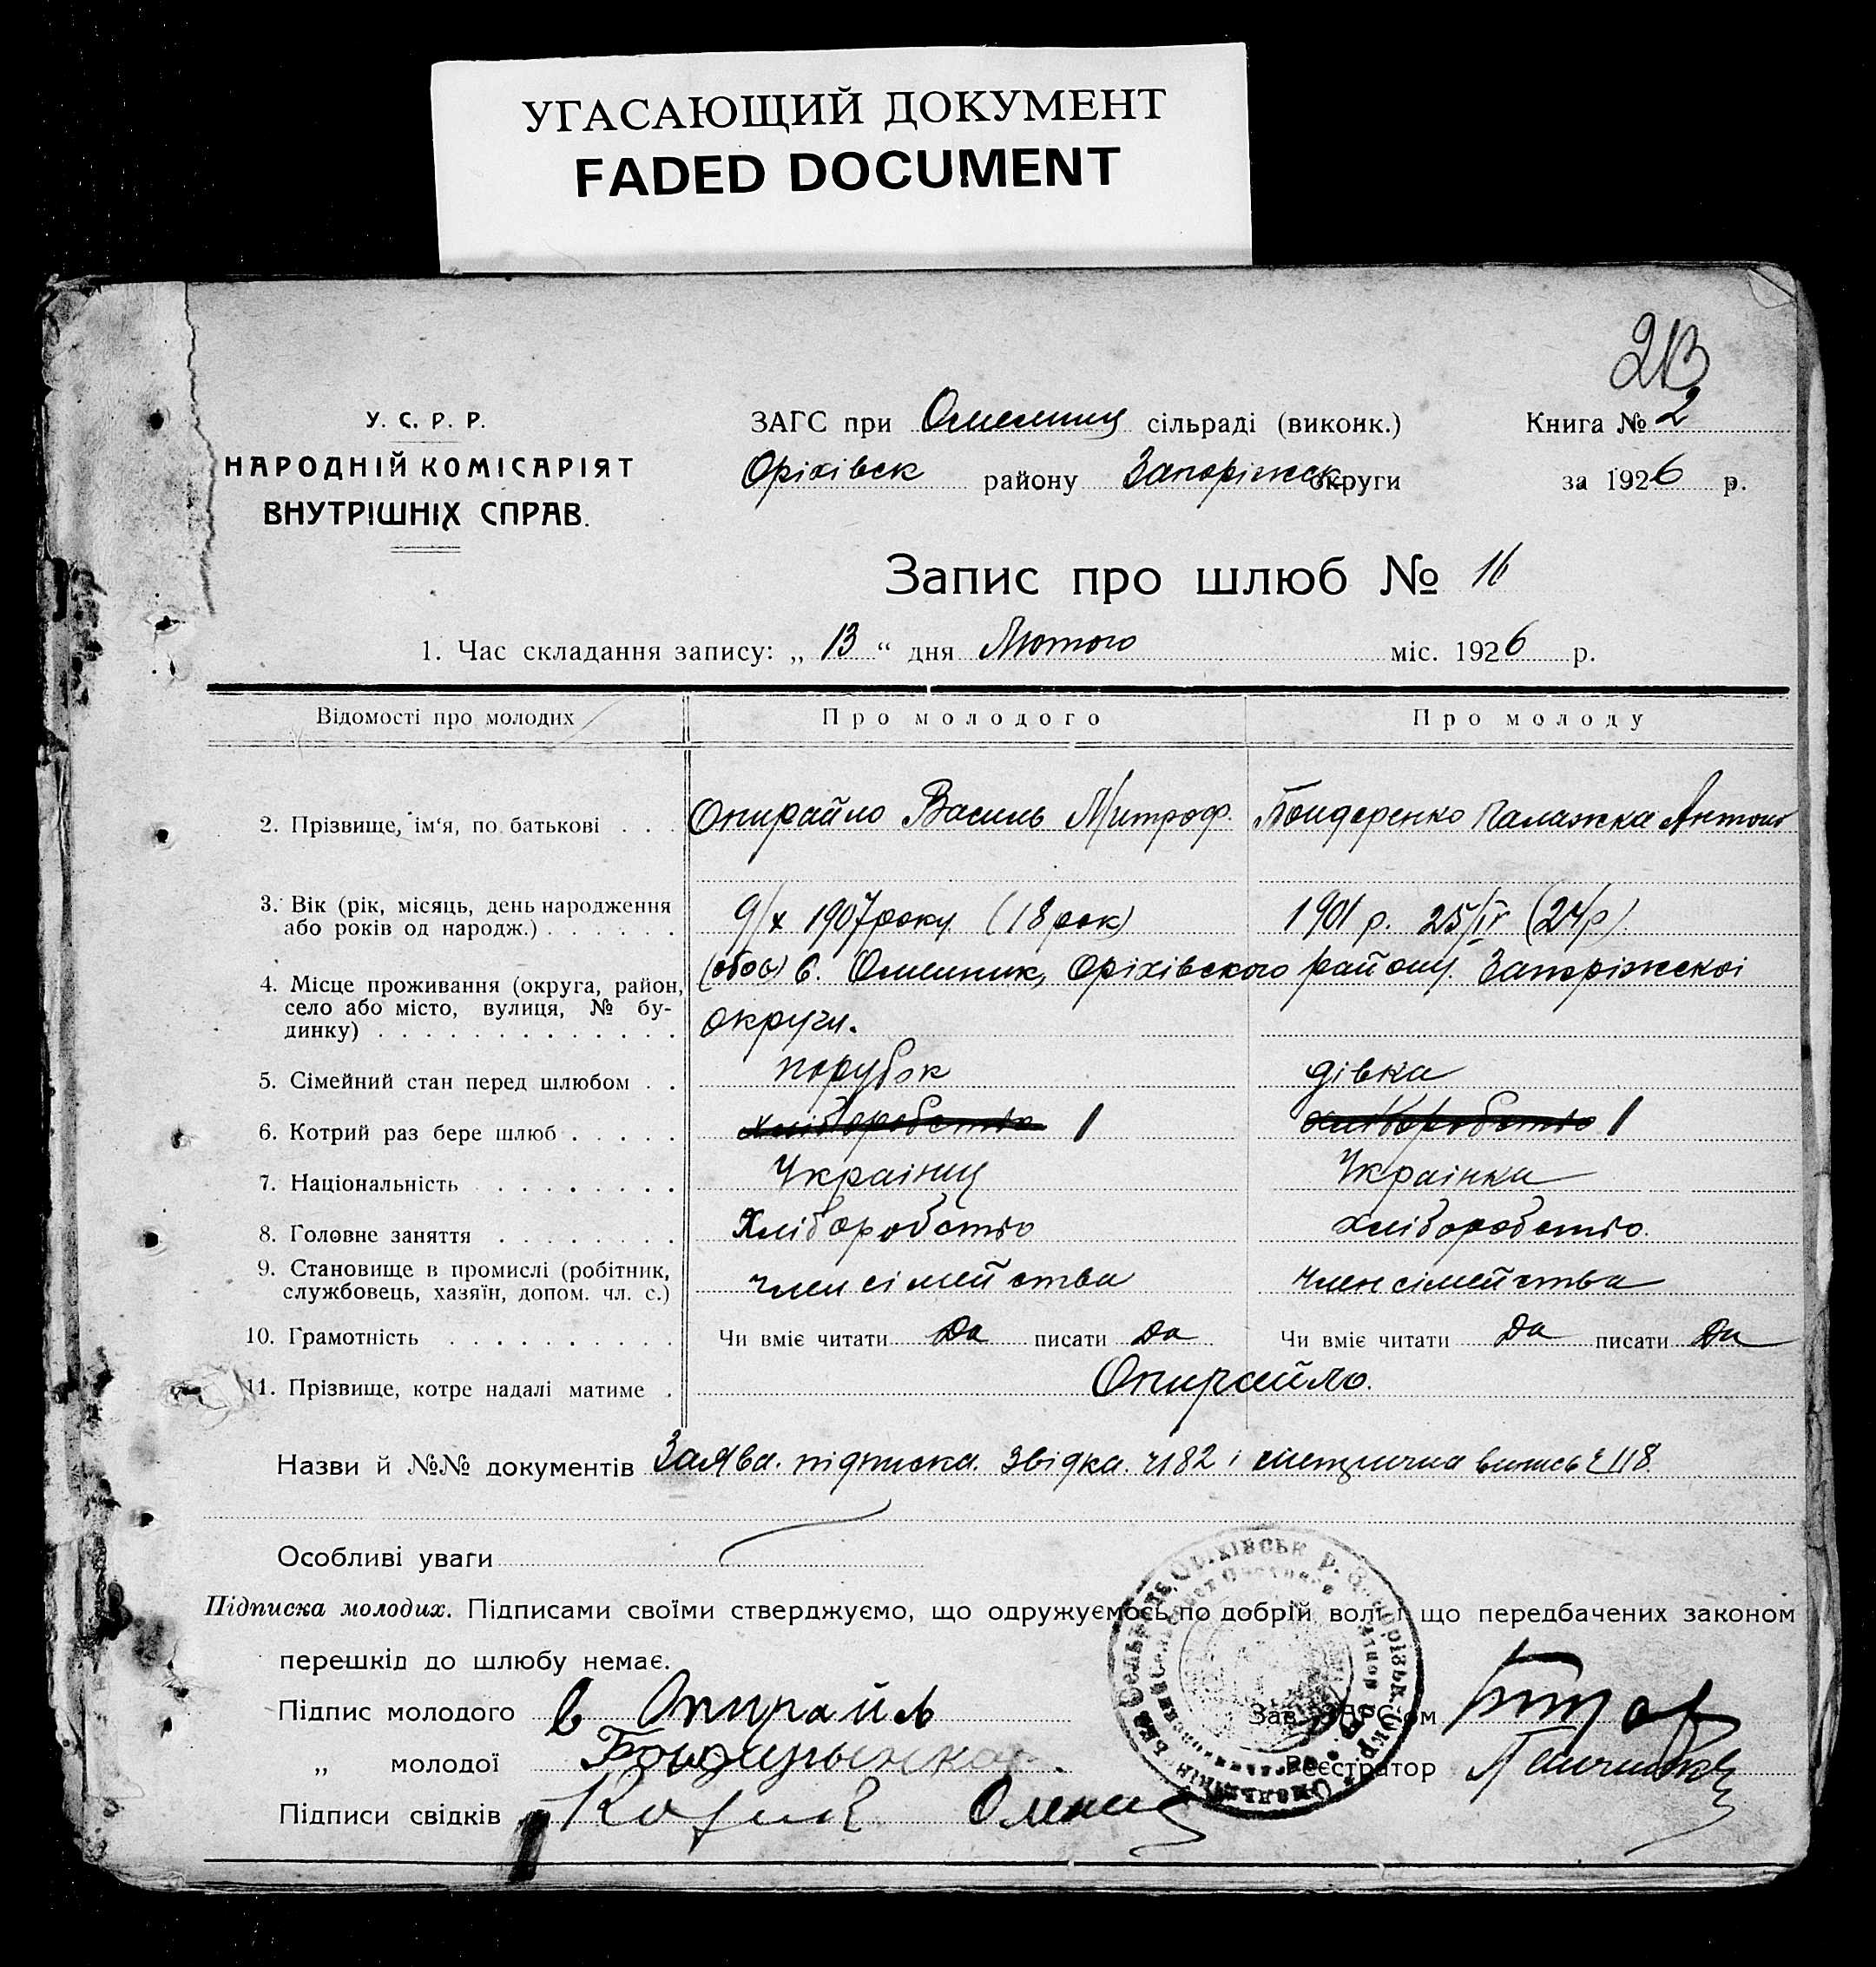 УГАСАЮЩИЙ ДОКУМЕНТ
FADED DOCUMENT
213
У. С. Р. Р.
НАРОДНІЙ КОМІСАРІЯТ
ВНУТРІШНІХ СПРАВ.
ЗАГС при сільраді (виконк.)
Оріхівськ району Запоріжськ округи
Книга № 2
за 1926 р.
Запис про шлюб № 16
1. Час складання запису: „ 13 “ дня Лютого міс. 1926 р.
Відомості про молодих Про молодого Про молоду
2. Прізвище, ім'я, по батькові . . . Опирайло Василь Митроф. Бондеренко Палажка Антонов
3. Вік (рік, місяць, день народження
або років од народж.) . . . . . . 9/х 1907 року (18 рок) 1901 р. 25/IV (24 р).
4. Місце проживання (округа, район,
село або місто, вулиця, № бу-
динку) . . . . . . . . . . . . . (обоє) с. Омельник, Оріхівского району. Запоріжскоі
округи.
5. Сімейний стан перед шлюбом . . порубок дівка
6. Котрий раз бере шлюб . . . . . хліборобство 1 хліборобство 1
7. Національність . . . . . . . Українец Українка
8. Головне заняття . . . . . . . . Хліборобство хліборобство.
9. Становище в промислі (робітник,
службовець, хазяїн, допом. чл. с.) член сімейства член сімейства
10. Грамотність . . . . . . . . . . Чи вміє читати Да писати Да Чи вміє читати Да писати Да
11. Прізвище, котре надалі матиме . Опирайло.
Назви й №№ документів Заява. підписка. Звідка. ч 182 і метрична випись ч 118.
Особливі уваги
Підписка молодих. Підписами своїми стверджуємо, що одружуємось по добрій волі і що передбачених законом
перешкід до шлюбу немає.
Підпис молодого в Опирайло Зав. ЗАГС'ом
„ молодої Реєстратор
Підписи свідків Олена